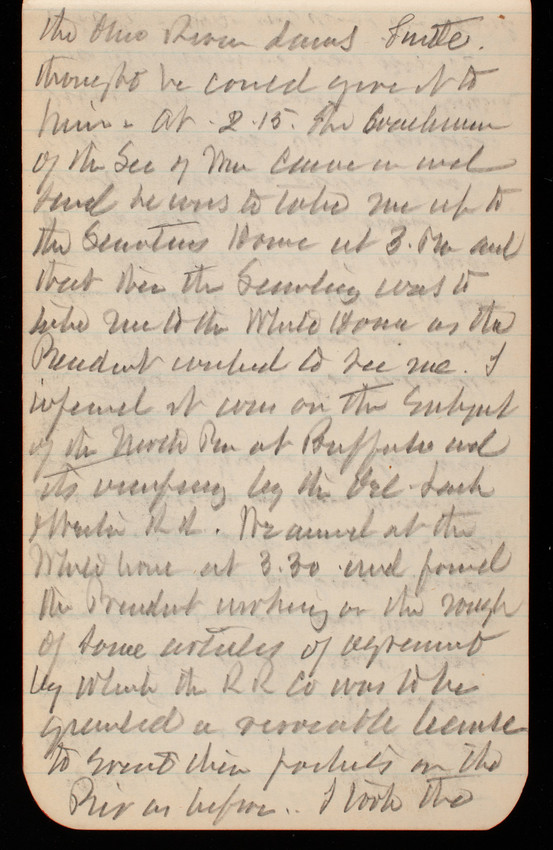 the Ohio River dams Smith.
thought he could give it to
him. At 2.15. the Coachman
of the Sec of War came in and
said he was to take me up to
the Secretarys House at 3. PM and
that then the Secretary was to
take me to the White House as the
President wished to see me. I
inferred it was on the Subject
of the North Pier at Buffalo and
its occupancy by the Del. Lack
& Western RR. We arrived at the
White house at 3.30 and found
the President working on the rough
of some articles of agreement
by which the R R Co was to be
granted a revocable license
to erect their pockets on the
Pier as before.. I took the